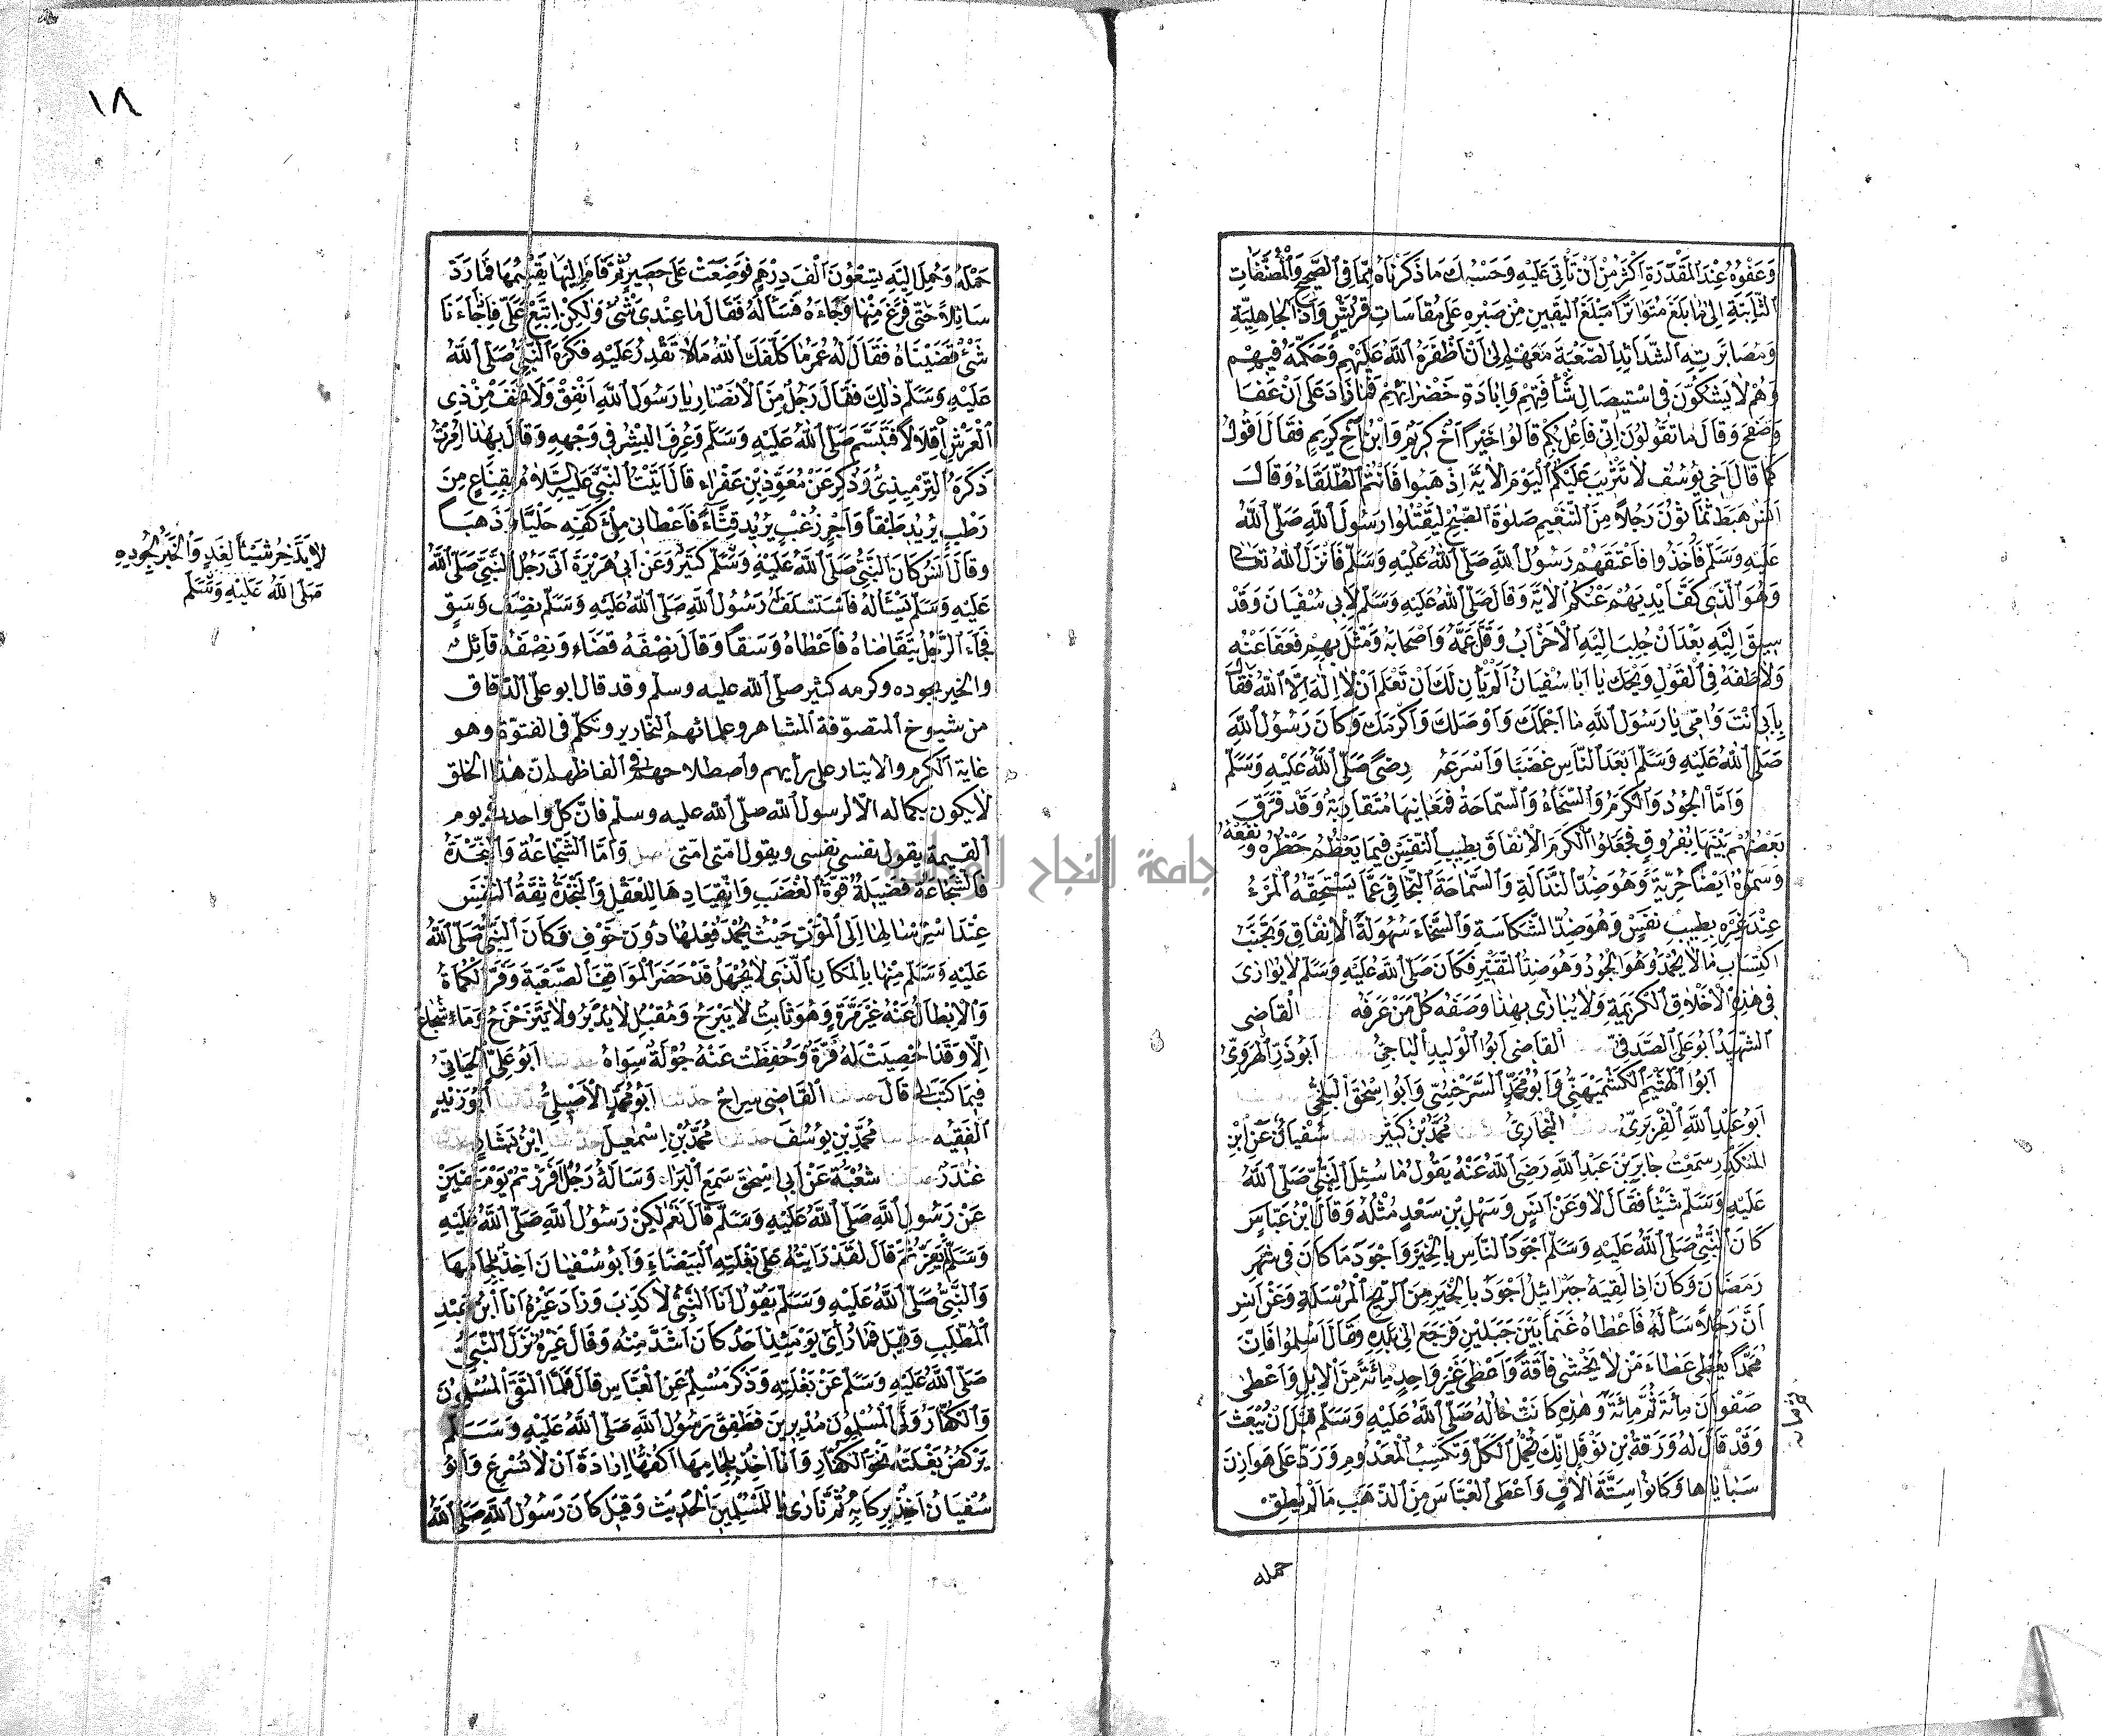 وَعَفْوُهُ عِنْدَ الْمَقْدَرَةِ اَكْثَرُ مِنْ اَنْ نَأْتِىَ عَلَيْهِ وَحَسْبُكَ مَا ذَكَرْنَاهُ مِمَّا فِى الصَّحِيحِ وَالْمُصَنَّفَاتِ
الثَّابِتَةِ اِلَى مَا بَلَغَ مُتَوَاتِرًا مَبْلَغَ الْيَقِينِ مِنْ صَبْرِهِ عَلَى مُقَاسَاتِ قُرَيْشٍ وَاَذَا الْجَاهِلِيَّةِ
وَمُصَابَرَتِهِ الشَّدَائِدَ الصَّعْبَةَ مَعَهُمْ اِلَى اَنْ اَظْفَرَهُ اللّٰهُ عَلَيْهِمْ وَحَكَّمَهُ فِيهِمْ
وَهُمْ لَا يَشُكُّونَ فِى اسْتِيصَالِ شَأْفَتِهِمْ وَاِبَادَةِ خَضْرَائِهِمْ فَمَا زَادَ عَلَى اَنْ عَفَا
وَصَفَحَ وَقَالَ مَا تَقُولُونَ اَنِّى فَاعِلٌ بِكُمْ قَالُوا خَيْرًا اَخٌ كَرِيمٌ وَابْنُ اَخٍ كَرِيمٍ فَقَالَ اَقُولُ
كَمَا قَالَ اَخِى يُوسُفُ لَا تَثْرِيبَ عَلَيْكُمُ الْيَوْمَ الْاٰيَةَ اِذْهَبُوا فَاَنْتُمُ الطُّلَقَاءُ وَقَالَ
اَنَسٌ هَبَطَ ثَمَانُونَ رَجُلًا مِنَ التَّنْعِيمِ صَلٰوةَ الصُّبْحِ لِيَقْتُلُوا رَسُولَ اللّٰهِ صَلَّى اللّٰهُ
عَلَيْهِ وَسَلَّمَ فَاُخِذُوا فَاَعْتَقَهُمْ رَسُولُ اللّٰهِ صَلَّى اللّٰهُ عَلَيْهِ وَسَلَّمَ فَاَنْزَلَ اللّٰهُ تَعَالَى
وَهُوَ الَّذِى كَفَّ اَيْدِيَهُمْ عَنْكُمُ الْاٰيَةَ وَقَالَ صَلَّى اللّٰهُ عَلَيْهِ وَسَلَّمَ لِاَبِى سُفْيَانَ وَقَدْ
سِيقَ اِلَيْهِ بَعْدَ اَنْ جَلَبَ اِلَيْهِ الْاَحْزَابَ وَقَتَلَ عَمَّهُ وَاَصْحَابَهُ وَمَثَّلَ بِهِمْ فَعَفَا عَنْهُ
وَلَاطَفَهُ فِى الْقَوْلِ وَيْحَكَ يَا اَبَا سُفْيَانَ اَلَمْ يَأْنِ لَكَ اَنْ تَعْلَمَ اَنْ لَا اِلٰهَ اِلَّا اللّٰهُ فَقَالَ
بِاَبِى اَنْتَ وَاُمِّى يَا رَسُولَ اللّٰهِ مَا اَحْلَمَكَ وَاَوْصَلَكَ وَاَكْرَمَكَ وَكَانَ رَسُولُ اللّٰهِ
صَلَّى اللّٰهُ عَلَيْهِ وَسَلَّمَ اَبْعَدَ النَّاسِ غَضَبًا وَاَسْرَعَهُمْ رِضًى صَلَّى اللّٰهُ عَلَيْهِ وَسَلَّمَ
وَاَمَّا الْجُودُ وَالْكَرَمُ وَالسَّخَاءُ وَالسَّمَاحَةُ فَمَعَانِيهَا مُتَقَارِبَةٌ وَقَدْ فَرَّقَ
بَعْضُهُمْ بَيْنَهَا بِفُرُوقٍ فَجَعَلُوا الْكَرَمَ الْاِنْفَاقَ بِطِيبِ النَّفْسِ فِيمَا يَعْظُمُ خَطَرُهُ وَنَفْعُهُ
وَسَمَّوْهُ اَيْضًا حُرِّيَّةً وَهُوَ ضِدُّ النَّذَالَةِ وَالسَّمَاحَةَ التَّجَافِى عَمَّا يَسْتَحِقُّهُ الْمَرْءُ
عِنْدَ غَيْرِهِ بِطِيبِ نَفْسٍ وَهُوَ ضِدُّ الشَّكَاسَةِ وَالسَّخَاءَ سُهُولَةُ الْاِنْفَاقِ وَتَجَنُّبُ
اكْتِسَابِ مَا لَا يُحْمَدُ وَهُوَ الْجُودُ وَهُوَ ضِدُّ التَّقْتِيرِ فَكَانَ صَلَّى اللّٰهُ عَلَيْهِ وَسَلَّمَ لَا يُوَازَى
فِى هٰذِهِ الْاَخْلَاقِ الْكَرِيمَةِ وَلَا يُبَارَى بِهٰذَا وَصَفَهُ كُلُّ مَنْ عَرَفَهُ الْقَاضِى
الشَّهِيدُ اَبُو عَلِىٍّ الصَّدَفِىُّ الْقَاضِى اَبُو الْوَلِيدِ الْبَاجِىُّ اَبُو ذَرٍّ الْهَرَوِىُّ
اَبُو الْهَيْثَمِ الْكُشْمِيهَنِىُّ وَاَبُو مُحَمَّدٍ السَّرَخْسِىُّ وَاَبُو اِسْحٰقَ الْبَلْخِىُّ
اَبُو عَبْدِ اللّٰهِ الْفِرَبْرِىُّ الْبُخَارِىُّ مُحَمَّدُ بْنُ كَثِيرٍ سُفْيَانُ عَنِ ابْنِ
الْمُنْكَدِرِ سَمِعْتُ جَابِرَ بْنَ عَبْدِ اللّٰهِ رَضِىَ اللّٰهُ عَنْهُ يَقُولُ مَا سُئِلَ النَّبِىُّ صَلَّى اللّٰهُ
عَلَيْهِ وَسَلَّمَ شَيْئًا فَقَالَ لَا وَعَنْ اَنَسٍ وَسَهْلِ بْنِ سَعْدٍ مِثْلُهُ وَقَالَ ابْنُ عَبَّاسٍ
كَانَ النَّبِىُّ صَلَّى اللّٰهُ عَلَيْهِ وَسَلَّمَ اَجْوَدَ النَّاسِ بِالْخَيْرِ وَاَجْوَدَ مَا كَانَ فِى شَهْرِ
رَمَضَانَ وَكَانَ اِذَا لَقِيَهُ جَبْرَائِيلُ اَجْوَدَ بِالْخَيْرِ مِنَ الرِّيحِ الْمُرْسَلَةِ وَعَنْ اَنَسٍ
اَنَّ رَجُلًا سَأَلَهُ فَاَعْطَاهُ غَنَمًا بَيْنَ جَبَلَيْنِ فَرَجَعَ اِلَى بَلَدِهِ وَقَالَ اَسْلِمُوا فَاِنَّ
مُحَمَّدًا يُعْطِى عَطَاءَ مَنْ لَا يَخْشَى فَاقَةً وَاَعْطَى غَيْرَ وَاحِدٍ مِائَةً مِنَ الْاِبِلِ وَاَعْطَى
صَفْوَانَ مِائَةً ثُمَّ مِائَةً وَهٰذِهِ كَانَتْ حَالُهُ صَلَّى اللّٰهُ عَلَيْهِ وَسَلَّمَ قَبْلَ اَنْ يُبْعَثَ
وَقَدْ قَالَ لَهُ وَرَقَةُ بْنُ نَوْفَلٍ اِنَّكَ تَحْمِلُ الْكَلَّ وَتَكْسِبُ الْمَعْدُومَ وَرَدَّ عَلَى هَوَازِنَ
سَبَايَاهَا وَكَانُوا سِتَّةَ اٰلَافٍ وَاَعْطَى الْعَبَّاسَ مِنَ الذَّهَبِ مَا لَمْ يُطِقْ
حمله
١٨
حَمْلَهُ وَحُمِلَ اِلَيْهِ تِسْعُونَ اَلْفَ دِرْهَمٍ فَوُضِعَتْ عَلَى حَصِيرٍ ثُمَّ قَامَ اِلَيْهَا يَقْسِمُهَا فَمَا رَدَّ
سَائِلًا حَتَّى فَرَغَ مِنْهَا وَجَاءَهُ فَسَأَلَهُ فَقَالَ مَا عِنْدِى شَىْءٌ وَلٰكِنِ ابْتَعْ عَلَىَّ فَاِذَا جَاءَنَا
شَىْءٌ قَضَيْنَاهُ فَقَالَ لَهُ عُمَرُ مَا كَلَّفَكَ اللّٰهُ مَا لَا تَقْدِرُ عَلَيْهِ فَكَرِهَ النَّبِىُّ صَلَّى اللّٰهُ
عَلَيْهِ وَسَلَّمَ ذٰلِكَ فَقَالَ رَجُلٌ مِنَ الْاَنْصَارِ يَا رَسُولَ اللّٰهِ اَنْفِقْ وَلَا تَخَفْ مِنْ ذِى
الْعَرْشِ اِقْلَالًا فَتَبَسَّمَ صَلَّى اللّٰهُ عَلَيْهِ وَسَلَّمَ وَعُرِفَ الْبِشْرُ فِى وَجْهِهِ وَقَالَ بِهٰذَا اُمِرْتُ
ذَكَرَهُ التِّرْمِيذِىُّ وَذُكِرَ عَنْ مُعَوِّذِ بْنِ عَفْرَاءَ قَالَ اَتَيْتُ النَّبِىَّ عَلَيْهِ السَّلَامُ بِقِنَاعٍ مِنْ
رُطَبٍ يُرِيدُ طَبَقًا وَاَجْرٍ زُغْبٍ يُرِيدُ قِثَّاءً فَاَعْطَانِى مِلْءَ كَفِّهِ حَلْيًا وَذَهَبًا
وَقَالَ اَنَسٌ كَانَ النَّبِىُّ صَلَّى اللّٰهُ عَلَيْهِ وَسَلَّمَ كَثِيرٌ وَعَنْ اَبِى هُرَيْرَةَ اَتَى رَجُلٌ النَّبِىَّ صَلَّى اللّٰهُ
عَلَيْهِ وَسَلَّمَ يَسْأَلُهُ فَاسْتَسْلَفَ لَهُ رَسُولُ اللّٰهِ صَلَّى اللّٰهُ عَلَيْهِ وَسَلَّمَ نِصْفَ وَسَقٍ
فَجَاءَ الرَّجُلُ يَتَقَاضَاهُ فَاَعْطَاهُ وَسَقًا وَقَالَ نِصْفُهُ قَضَاءٌ وَنِصْفُهُ نَائِلٌ
والخير بجوده وكرمه كثير صلّى اللّٰه عليه وسلم وقد قال ابو علىّ الدّقاق
من شيوخ المتصوّفة المشاهر وعلمائهم النّحارير وتكلّم فى الفتوّة وهو
غاية الكرم والايثار على رأيهم واصطلاحهم فى الفاظهم انّ هذا الخلق
لا يكون بكماله الّا لرسول اللّٰه صلّى اللّٰه عليه وسلّم فانّ كلّ واحد فى يوم
القيمة يقول نفسى نفسى ويقول امّتى امّتى فصل وَاَمَّا الشَّجَاعَةُ وَالنَّجْدَةُ
فَالشَّجَاعَةُ فَضِيلَةُ قُوَّةِ الْغَضَبِ وَانْقِيَادِهَا لِلْعَقْلِ وَالنَّجْدَةُ ثِقَةُ النَّفْسِ
عِنْدَ اسْتِرْسَالِهَا اِلَى الْمَوْتِ حَيْثُ يُحْمَدُ فِعْلُهَا دُونَ خَوْفٍ وَكَانَ النَّبِىُّ صَلَّى اللّٰهُ
عَلَيْهِ وَسَلَّمَ مِنْهَا بِالْمَكَانِ الَّذِى لَا يُجْهَلُ قَدْ حَضَرَ الْمَوَاقِفَ الصَّعْبَةَ وَفَرَّ الْكُمَاةُ
وَالْاَبْطَالُ عَنْهُ غَيْرَ مَرَّةٍ وَهُوَ ثَابِتٌ لَا يَبْرَحُ وَمُقْبِلٌ لَا يُدْبِرُ وَلَا يَتَزَحْزَحُ وَمَا شُجَاعٌ
اِلَّا وَقَدْ اُحْصِيَتْ لَهُ فَرَّةٌ وَحُفِظَتْ عَنْهُ جَوْلَةٌ سِوَاهُ حدثنا اَبُو عَلِىٍّ الْجَيَّانِىُّ
فِيمَا كَتَبَ لِى قَالَ حدثنا الْقَاضِى سِرَاجٌ حدثنا اَبُو مُحَمَّدٍ الْاَصِيلِىُّ حدثنا اَبُو زَيْدٍ
الْفَقِيهُ حدثنا مُحَمَّدُ بْنُ يُوسُفَ حدثنا مُحَمَّدُ بْنُ اِسْمٰعِيلَ حدثنا اِبْنُ بَشَّارٍ حدثنا
غُنْدَرٌ حدثنا شُعْبَةُ عَنْ اَبِى اِسْحٰقَ سَمِعَ الْبَرَاءَ وَسَأَلَهُ رَجُلٌ اَفَرَرْتُمْ يَوْمَ حُنَيْنٍ
عَنْ رَسُولِ اللّٰهِ صَلَّى اللّٰهُ عَلَيْهِ وَسَلَّمَ قَالَ نَعَمْ لٰكِنْ رَسُولُ اللّٰهِ صَلَّى اللّٰهُ عَلَيْهِ
وَسَلَّمَ لَمْ يَفِرَّ ثُمَّ قَالَ لَقَدْ رَاَيْتُهُ عَلَى بَغْلَتِهِ الْبَيْضَاءِ وَاَبُو سُفْيَانَ اٰخِذٌ بِلِجَامِهَا
وَالنَّبِىُّ صَلَّى اللّٰهُ عَلَيْهِ وَسَلَّمَ يَقُولُ اَنَا النَّبِىُّ لَا كَذِبْ وَزَادَ غَيْرُهُ اَنَا ابْنُ عَبْدِ
الْمُطَّلِبْ وَقِيلَ فَمَا رُأِىَ يَوْمَئِذٍ اَحَدٌ كَانَ اَشَدَّ مِنْهُ وَقَالَ غَيْرُهُ نَزَلَ النَّبِىُّ
صَلَّى اللّٰهُ عَلَيْهِ وَسَلَّمَ عَنْ بَغْلَتِهِ وَذَكَرَ مُسْلِمٌ عَنِ الْعَبَّاسِ قَالَ فَلَمَّا الْتَقَى الْمُسْلِمُونَ
وَالْكُفَّارُ وَلَّى الْمُسْلِمُونَ مُدْبِرِينَ فَطَفِقَ رَسُولُ اللّٰهِ صَلَّى اللّٰهُ عَلَيْهِ وَسَلَّمَ
يَرْكُضُ بَغْلَتَهُ نَحْوَ الْكُفَّارِ وَاَنَا اٰخِذٌ بِلِجَامِهَا اَكُفُّهَا اِرَادَةَ اَنْ لَا تُسْرِعَ وَاَبُو
سُفْيَانَ اٰخِذٌ بِرِكَابِهِ ثُمَّ نَادَى يَا لَلْمُسْلِمِينَ الْحَدِيثَ وَقِيلَ كَانَ رَسُولُ اللّٰهِ صَلَّى اللّٰهُ
لَا يَدَّخِرُ شَيْئًا لِغَدٍ وَالْخَيْرُ بِجُودِهِ
صَلَّى اللّٰهُ عَلَيْهِ وَسَلَّمَ
جامعة النجاح الوطنية